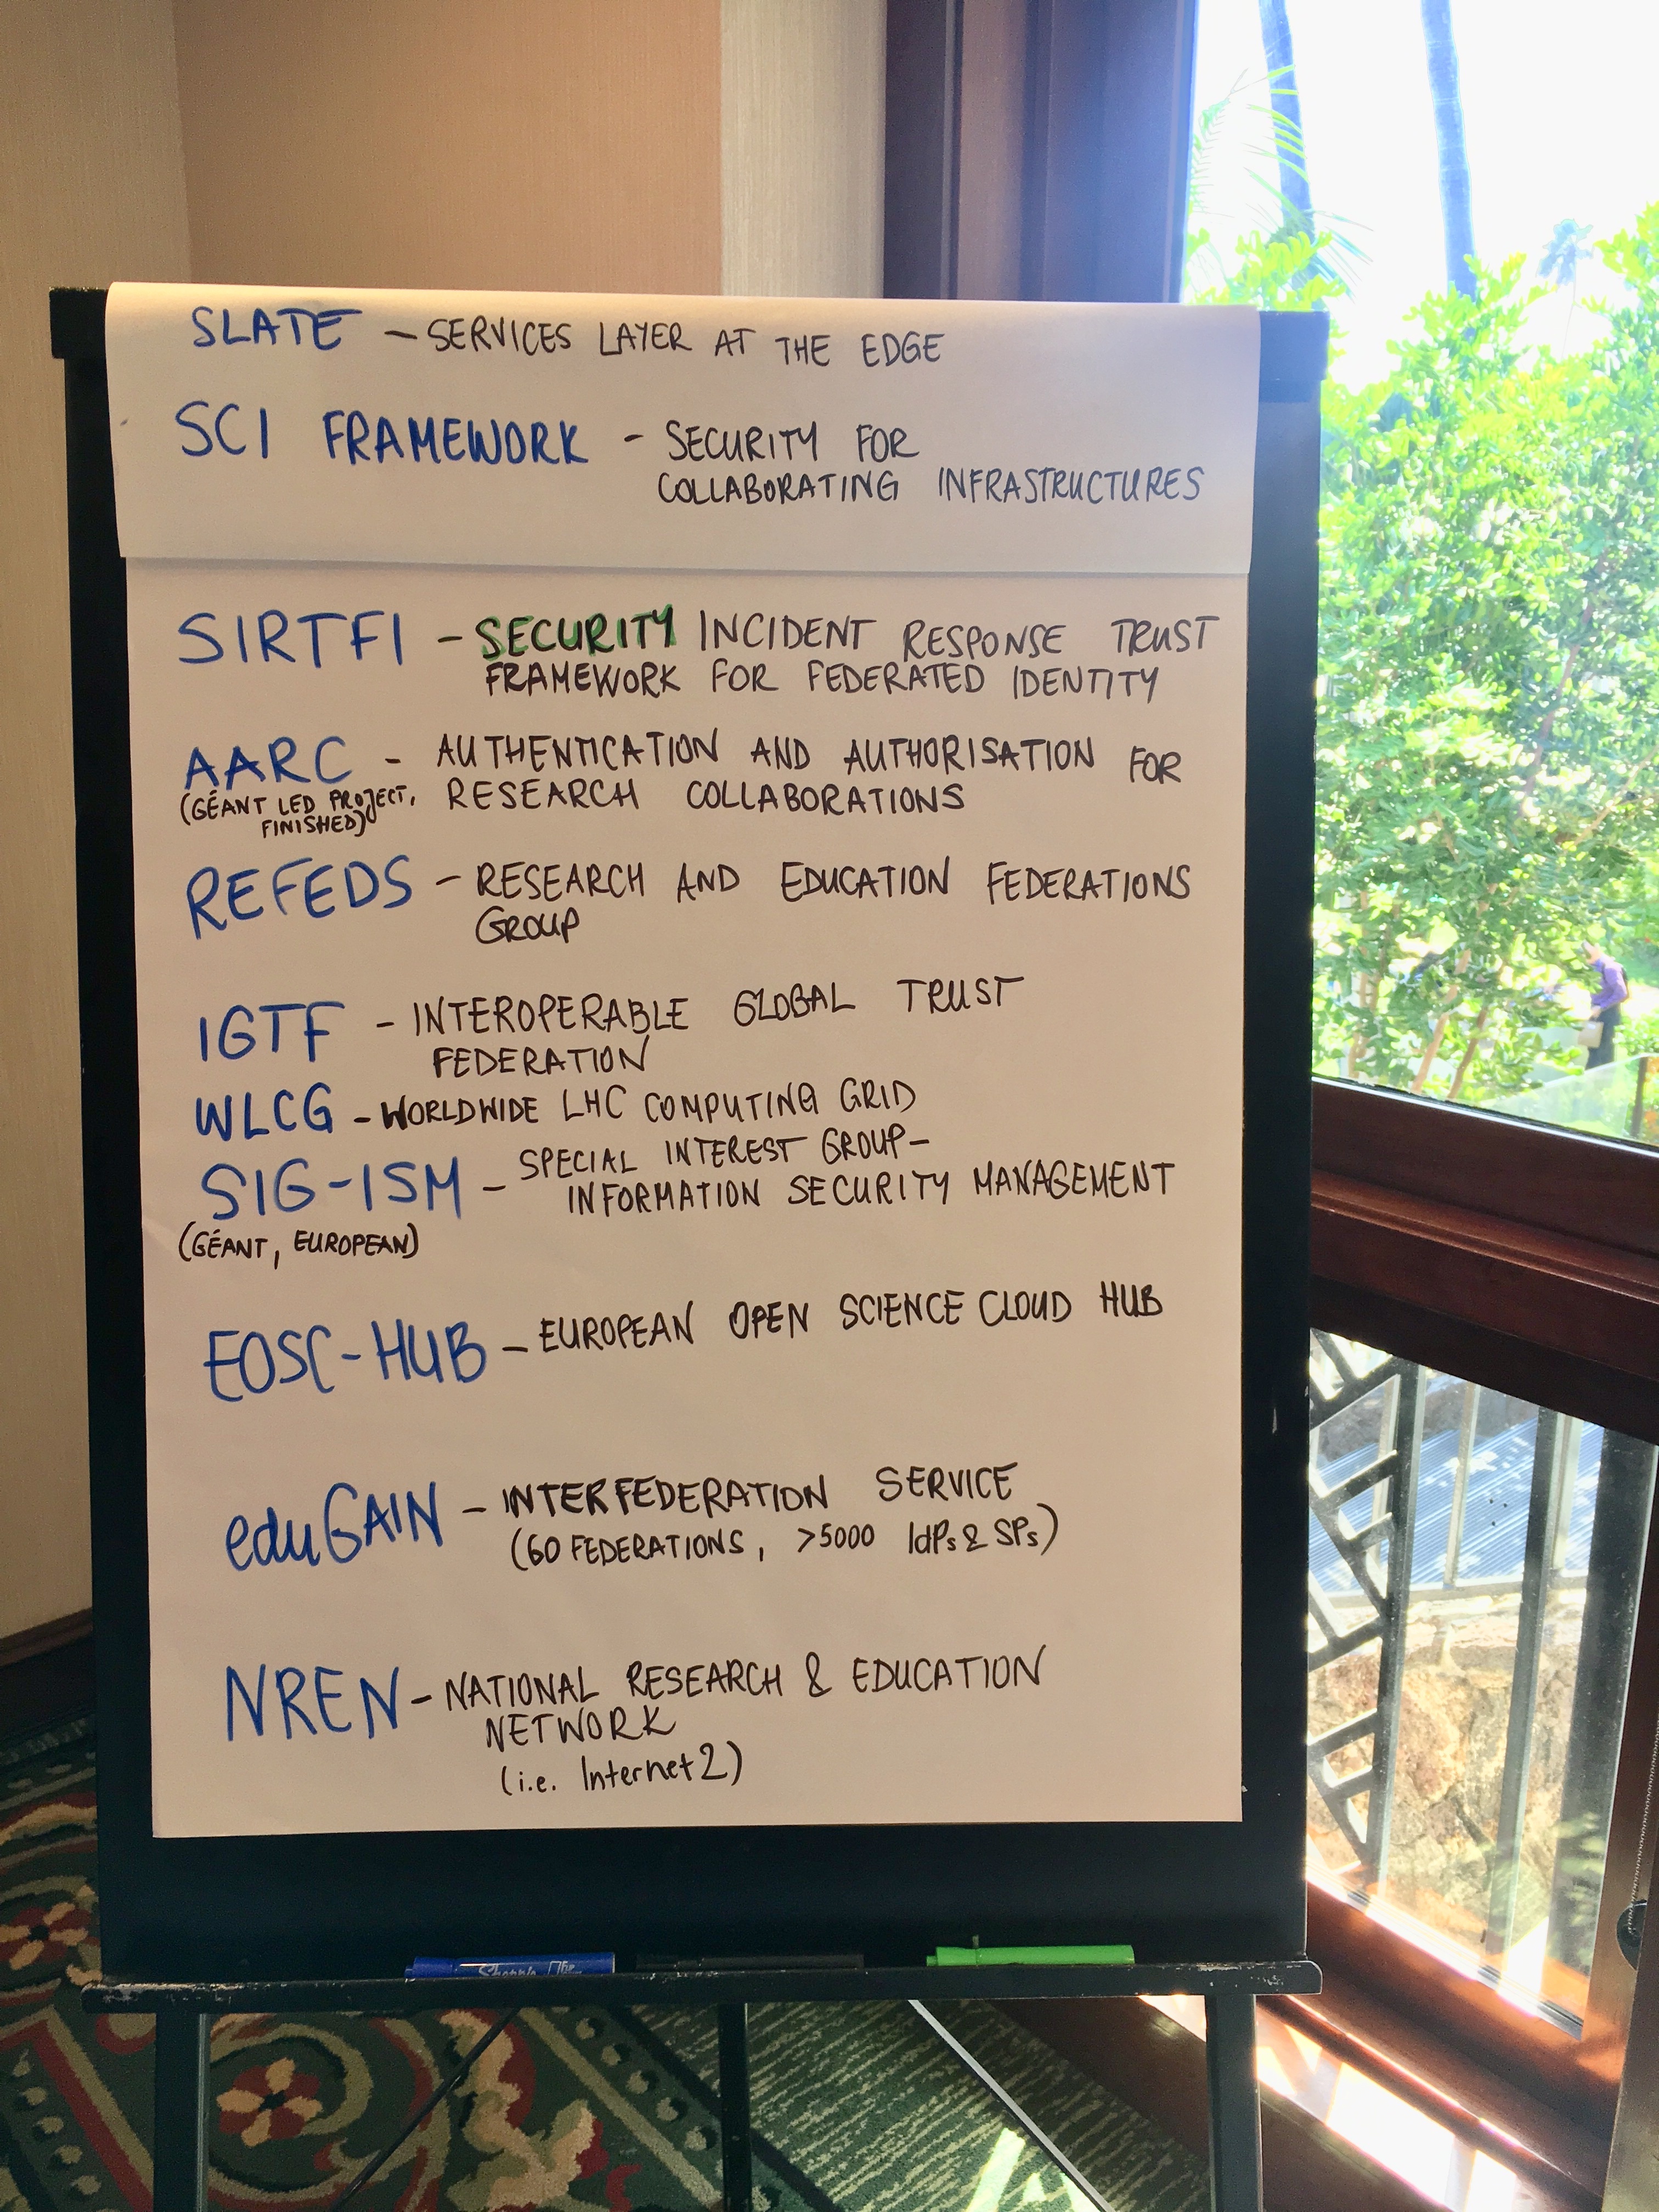 SLATE - SERVICES LAYER AT THE EDGE
SCI FRAMEWORK - SECURITY FOR
COLLABORATING INFRASTRUCTURES
SIRTFI - SECURITY INCIDENT RESPONSE TRUST
FRAMEWORK FOR FEDERATED IDENTITY
AARC - AUTHENTICATION AND AUTHORISATION FOR
(GÉANT LED PROJECT, RESEARCH COLLABORATIONS
FINISHED)
REFEDS - RESEARCH AND EDUCATION FEDERATIONS
GROUP
IGTF - INTEROPERABLE GLOBAL TRUST
FEDERATION
WLCG - WORLDWIDE LHC COMPUTING GRID
SIG-ISM - SPECIAL INTEREST GROUP-
INFORMATION SECURITY MANAGEMENT
(GÉANT, EUROPEAN)
EOSC-HUB - EUROPEAN OPEN SCIENCE CLOUD HUB
eduGAIN - INTERFEDERATION SERVICE
(60 FEDERATIONS, >5000 IdPs & SPs)
NREN - NATIONAL RESEARCH & EDUCATION
NETWORK
(i.e. Internet2)